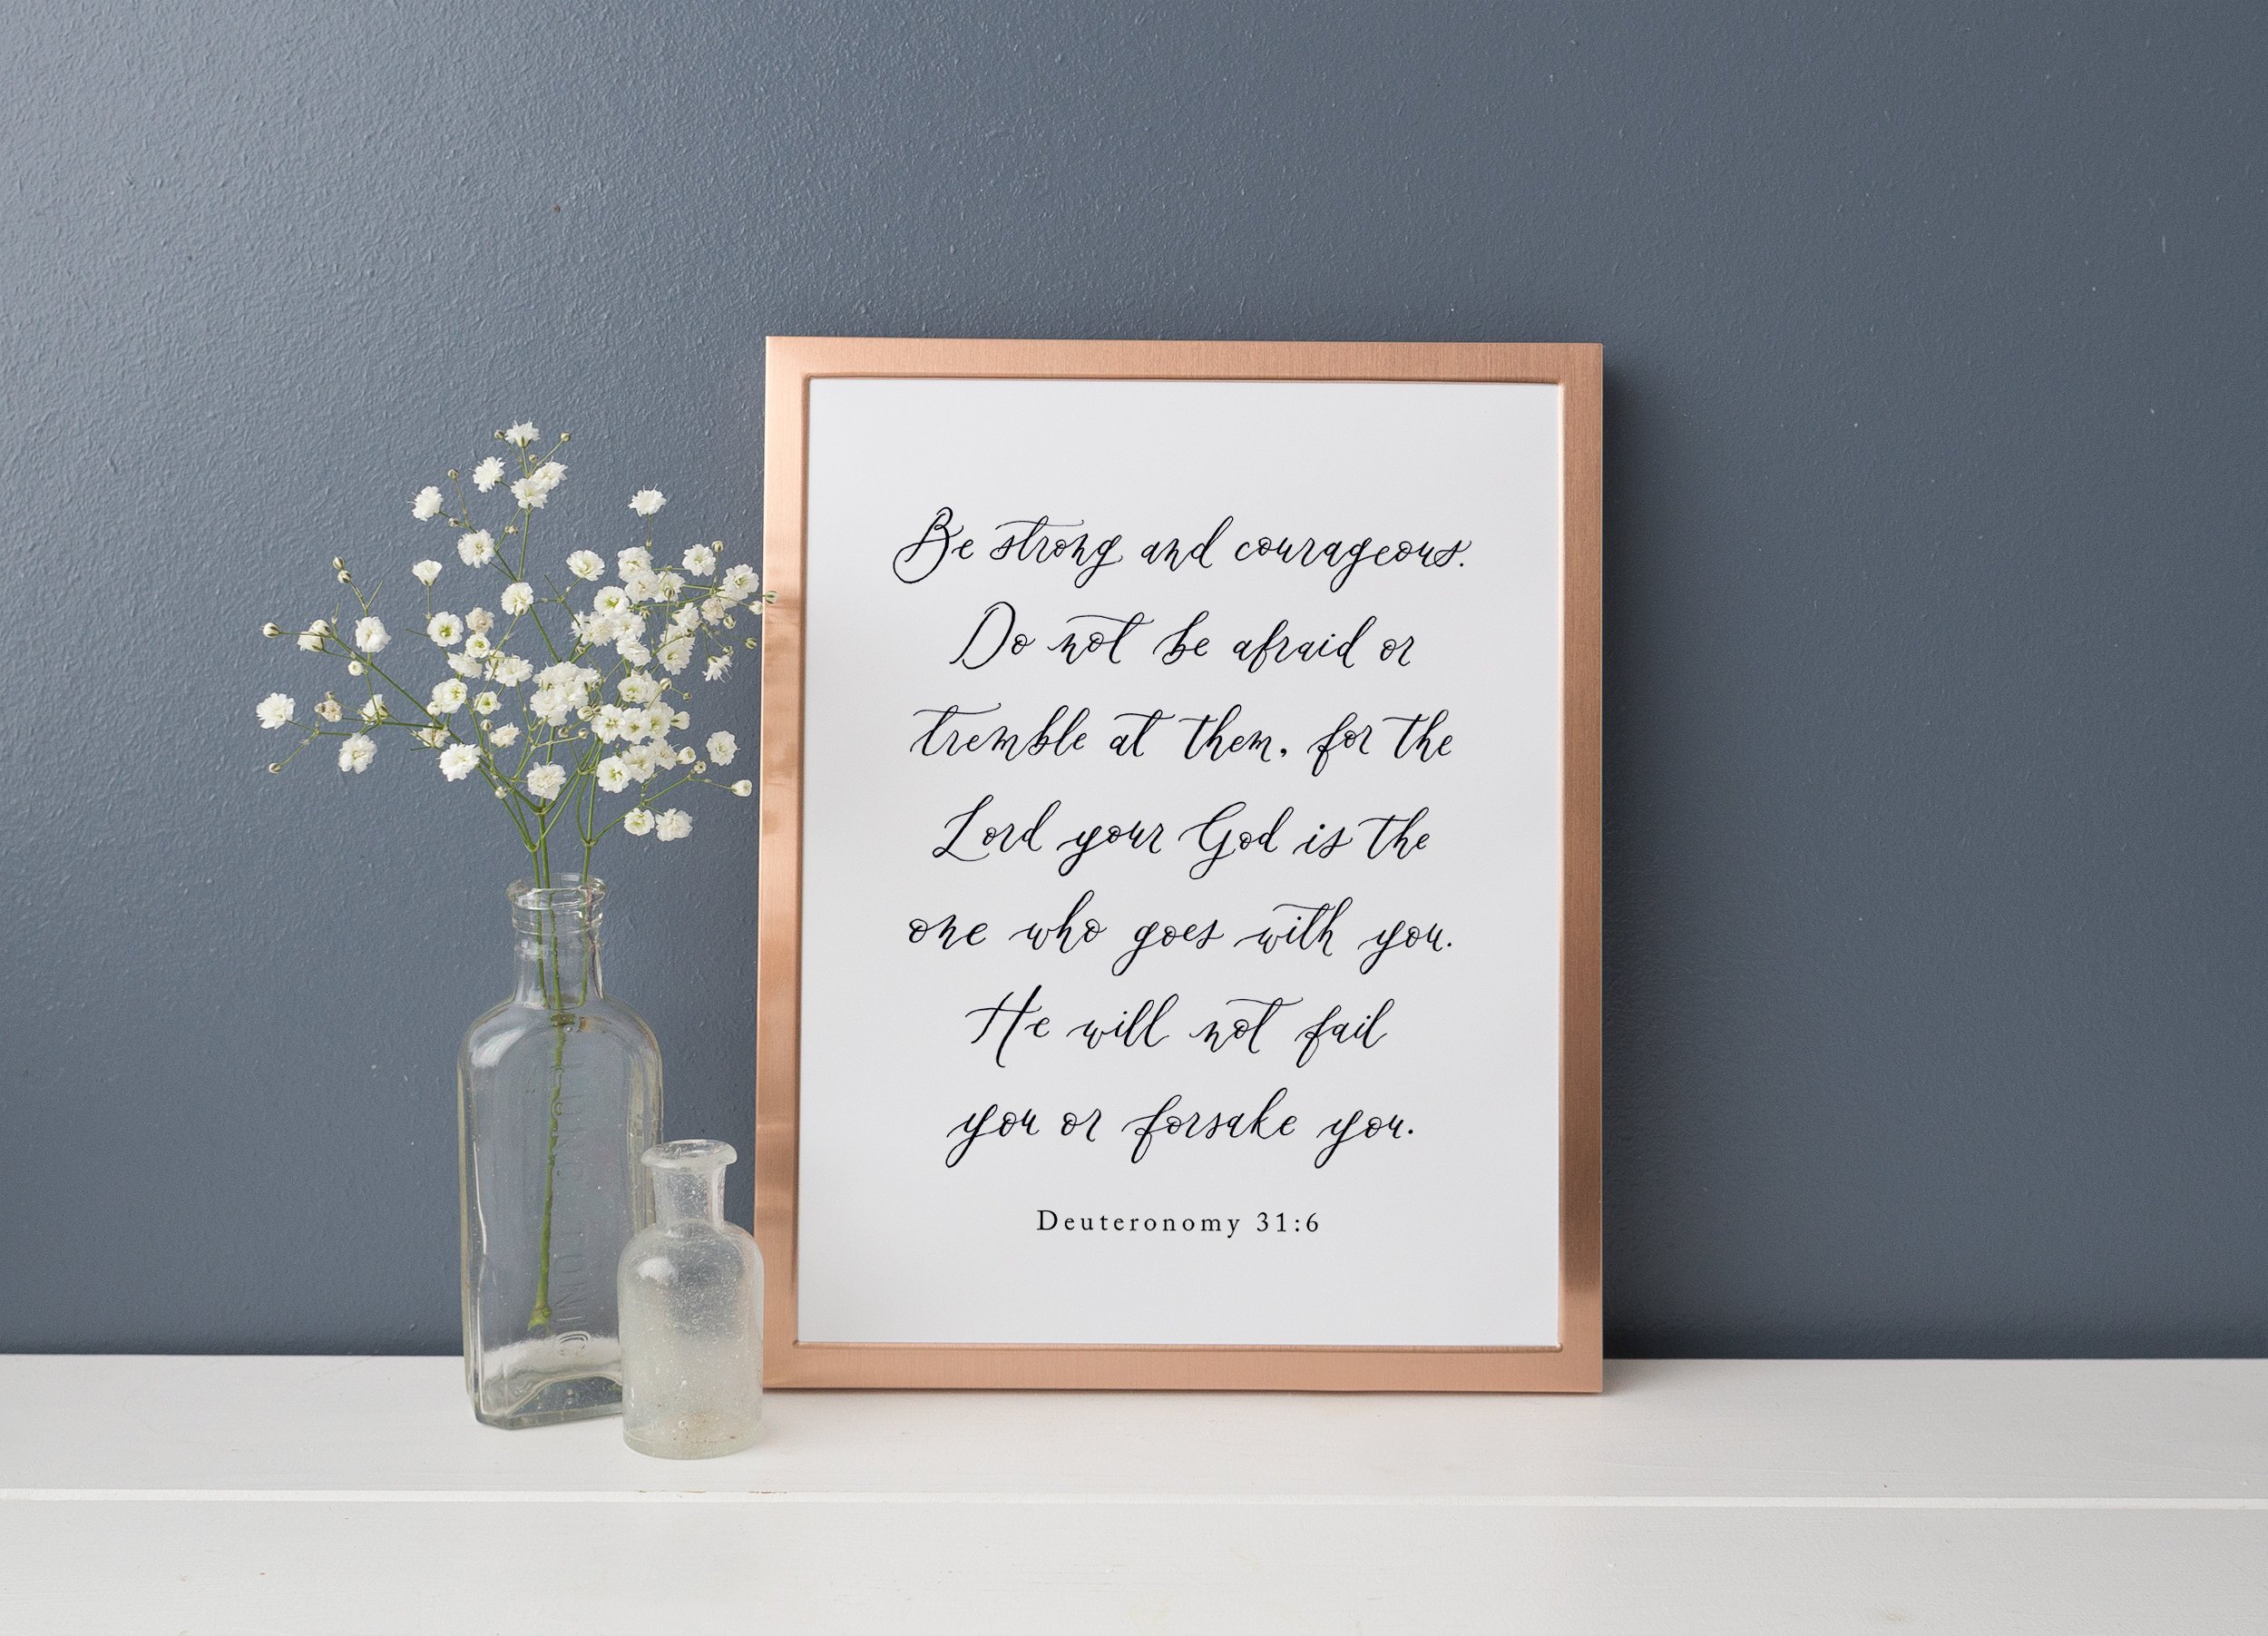 Be strong and courageous.
Do not be afraid or
tremble at them, for the
Lord your God is the
one who goes with you.
He will not fail
you or forsake you.
Deuteronomy 31:6